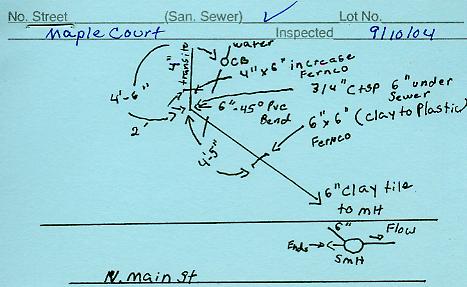 No. Street (San. Sewer) ✓ Lot No.
Maple Court Inspected 9/10/04
water
4" transite
CB
4" x 6" increase
Fernco
4'-6"
3/4" CTSP 6" under
Sewer
6"-45° PVC
Bend
6" x 6" (clay to Plastic)
Fernco
2'
4'-5"
6" Clay tile
to MH
6"
Flow
Ends
SMH
N. Main St